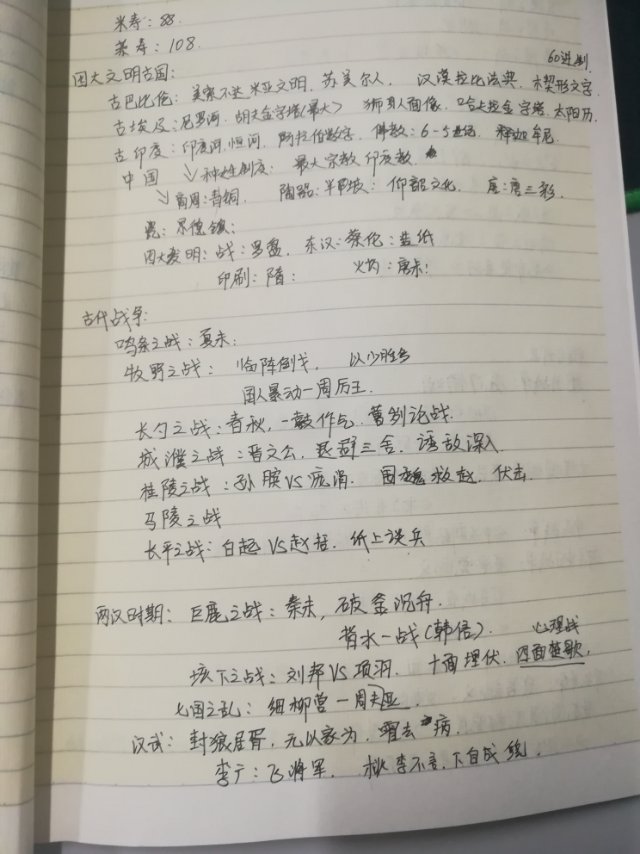 米寿：88.
茶寿：108.
60进制.
四大文明古国：
古巴比伦：美索不达米亚文明，苏美尔人，汉漠拉比法典，楔形文字.
古埃及：尼罗河，胡夫金字塔(最大) 狮身人面像，哈夫拉金字塔，太阳历.
古印度：印度河，恒河，阿拉伯数字，佛教：6-5世纪，释迦牟尼.
中国 ↘种姓制度：最大宗教 印度教.
↘商周：青铜， 陶器：半坡：仰韶文化， 唐：唐三彩.
瓷：景德镇：
四大发明：战：罗盘，东汉：蔡伦：造纸
印刷：隋： 火药：唐末：
古代战争：
鸣条之战：夏末：
牧野之战： 临阵倒戈， 以少胜多
国人暴动—周厉王.
长勺之战：春秋，一鼓作气，曹刿论战.
城濮之战：晋文公，退避三舍，诱敌深入.
桂陵之战：孙膑VS庞涓， 围魏救赵，伏击.
马陵之战
长平之战：白起VS赵括，纸上谈兵
两汉时期：巨鹿之战：秦末，破釜沉舟.
背水一战(韩信). 心理战
垓下之战：刘邦VS项羽，十面埋伏，四面楚歌.
七国之乱：细柳营—周亚夫.
汉武：封狼居胥，无以家为，霍去病.
李广：飞将军， 桃李不言，下自成蹊.